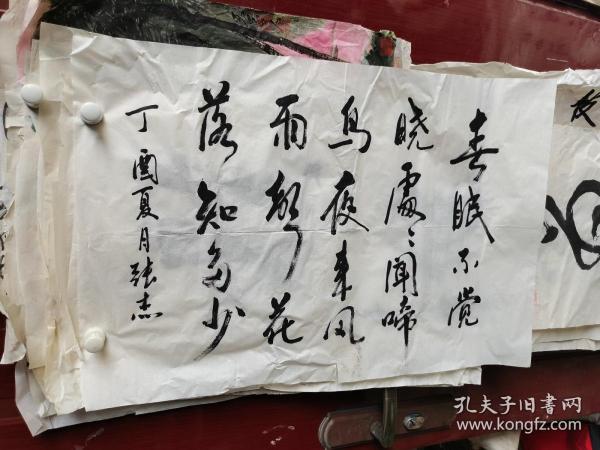 春眠不觉
晓處々闻啼
鸟夜来风
雨声花
落知多少
丁酉夏月张杰
孔夫子旧書网
www.kongfz.com